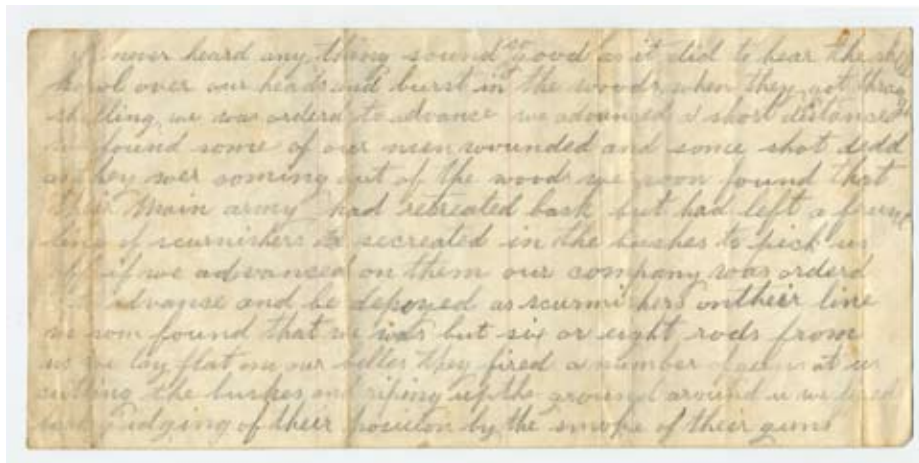 I never heard any thing sound so good as it did to hear the
howl over our heads and burst in the woods, when they got throug
shelling, we was orderd to advance we advanced a short distance
we found some of our men wounded and some shot dedd
as they wer coming out of the woods we soon found that
their Main army had retreated back but had left a
line of scurnishers secreated in the bushes to pick us
off if we advanced on them our company was orderd
to advanse and be depoyed as scurmishers on their line
we soon found that we was but six or eight rods from
us we lay flat on our bellies they fired a number of at us
cutting the bushes and riping up the ground around us we fired
judging of their position by the smoke of their guns